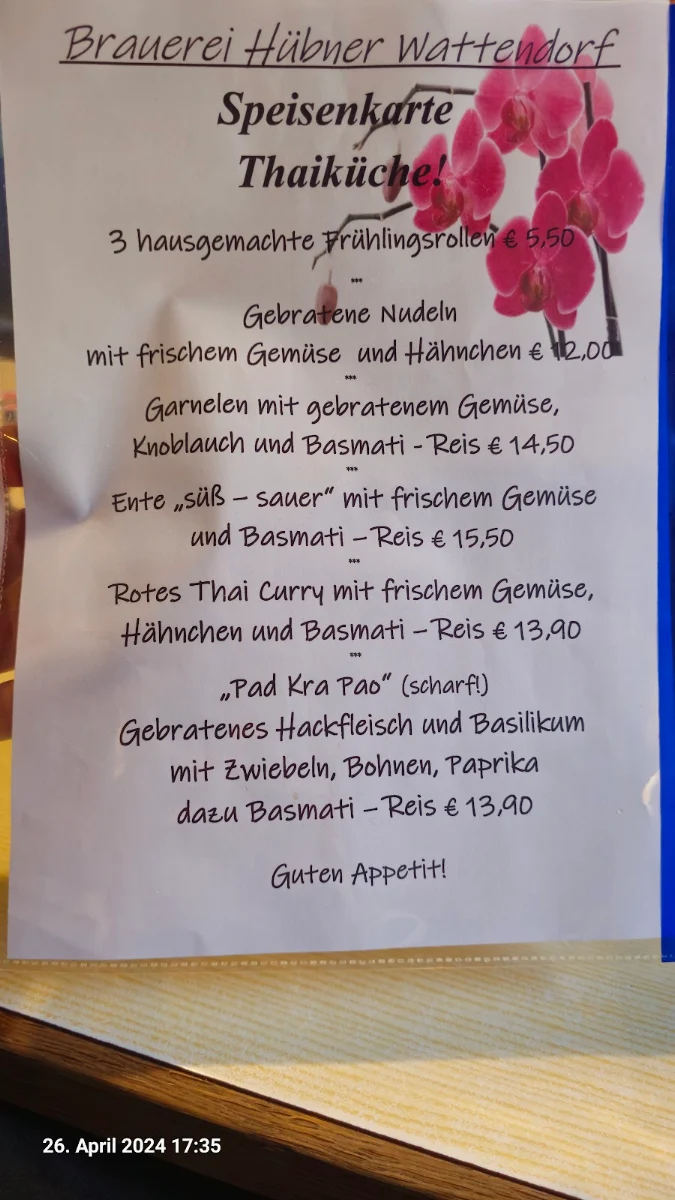 Brauerei Hübner Wattendorf
Speisenkarte
Thaiküche!
3 hausgemachte Frühlingsrollen € 5,50
***
Gebratene Nudeln
mit frischem Gemüse und Hähnchen € 12,00
***
Garnelen mit gebratenem Gemüse,
Knoblauch und Basmati - Reis € 14,50
***
Ente „süß – sauer“ mit frischem Gemüse
und Basmati – Reis € 15,50
***
Rotes Thai Curry mit frischem Gemüse,
Hähnchen und Basmati – Reis € 13,90
***
„Pad Kra Pao“ (scharf!)
Gebratenes Hackfleisch und Basilikum
mit Zwiebeln, Bohnen, Paprika
dazu Basmati – Reis € 13,90
Guten Appetit!
26. April 2024 17:35